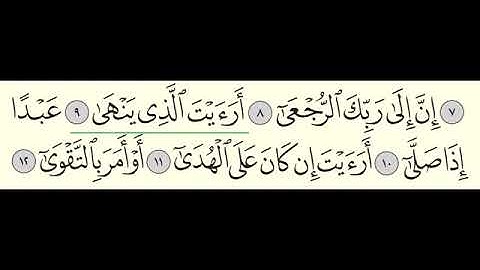 ٧ إِنَّ إِلَىٰ رَبِّكَ ٱلرُّجْعَىٰٓ ٨ أَرَءَيْتَ ٱلَّذِى يَنْهَىٰ ٩ عَبْدًا
إِذَا صَلَّىٰٓ ١٠ أَرَءَيْتَ إِن كَانَ عَلَى ٱلْهُدَىٰٓ ١١ أَوْ أَمَرَ بِٱلتَّقْوَىٰٓ ١٢